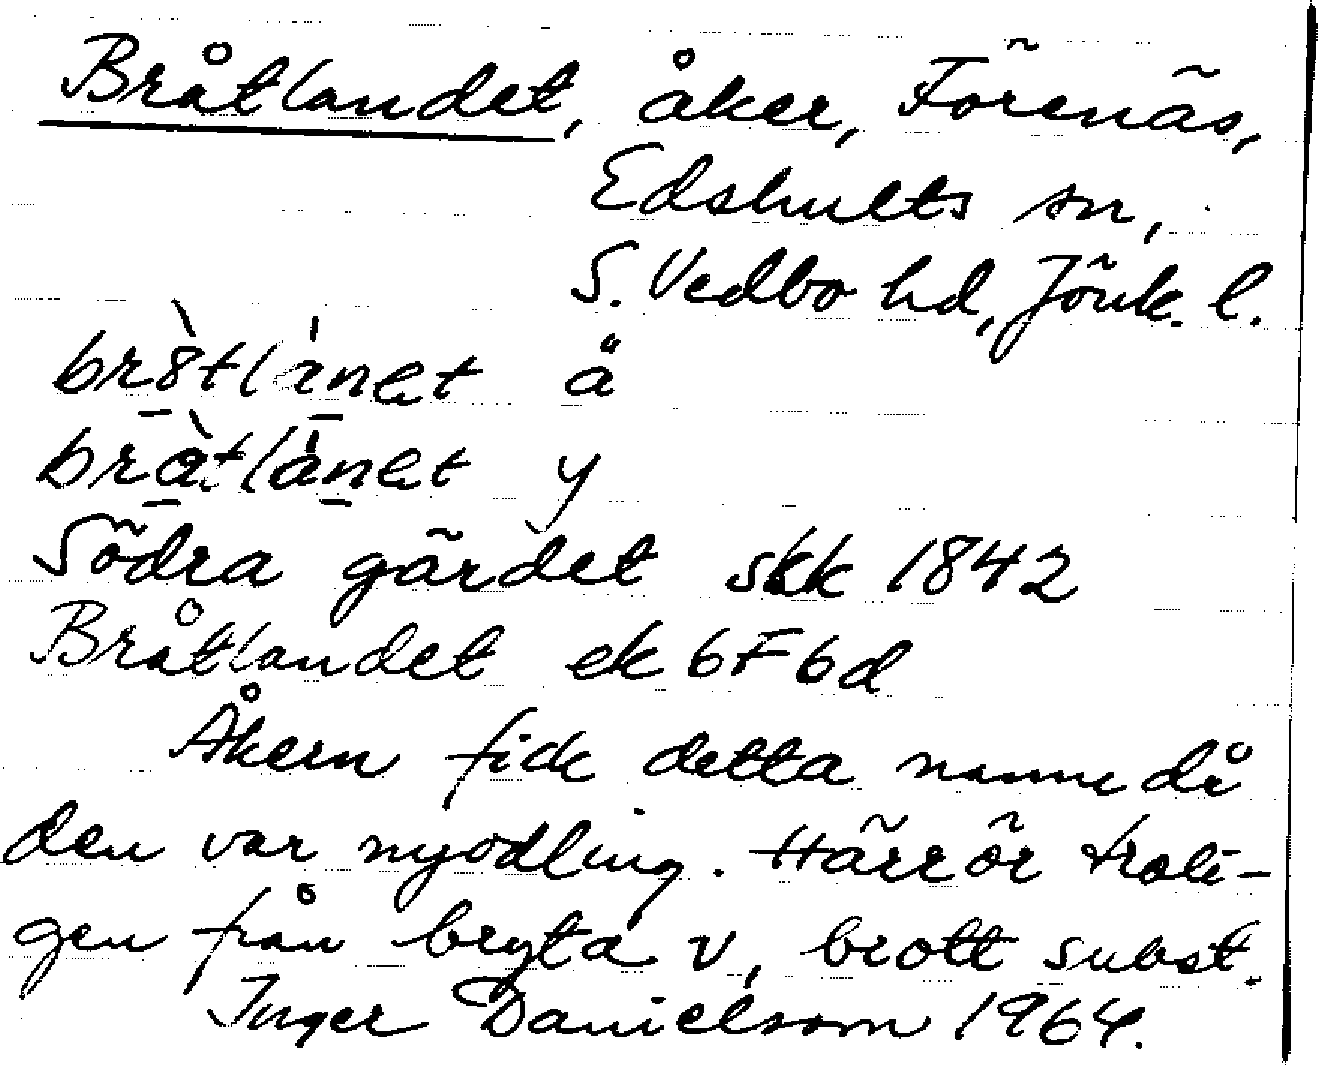 Bråtlandet, åker, Förenäs,
Edshults sn,
S. Vedbo hd, Jönk. l.
bròtlánet ä
bràtlánet y
Södra gärdet skk 1842
Bråtlandet ek 6F6d
Åkern fick detta namn då
den var nyodling. Härrör troli-
gen från bryta v, brott subst.
Inger Danielsson 1964.